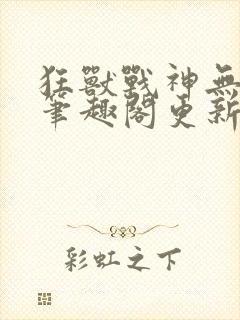 狂獸戰神無
筆趣閣更新
彩虹之下